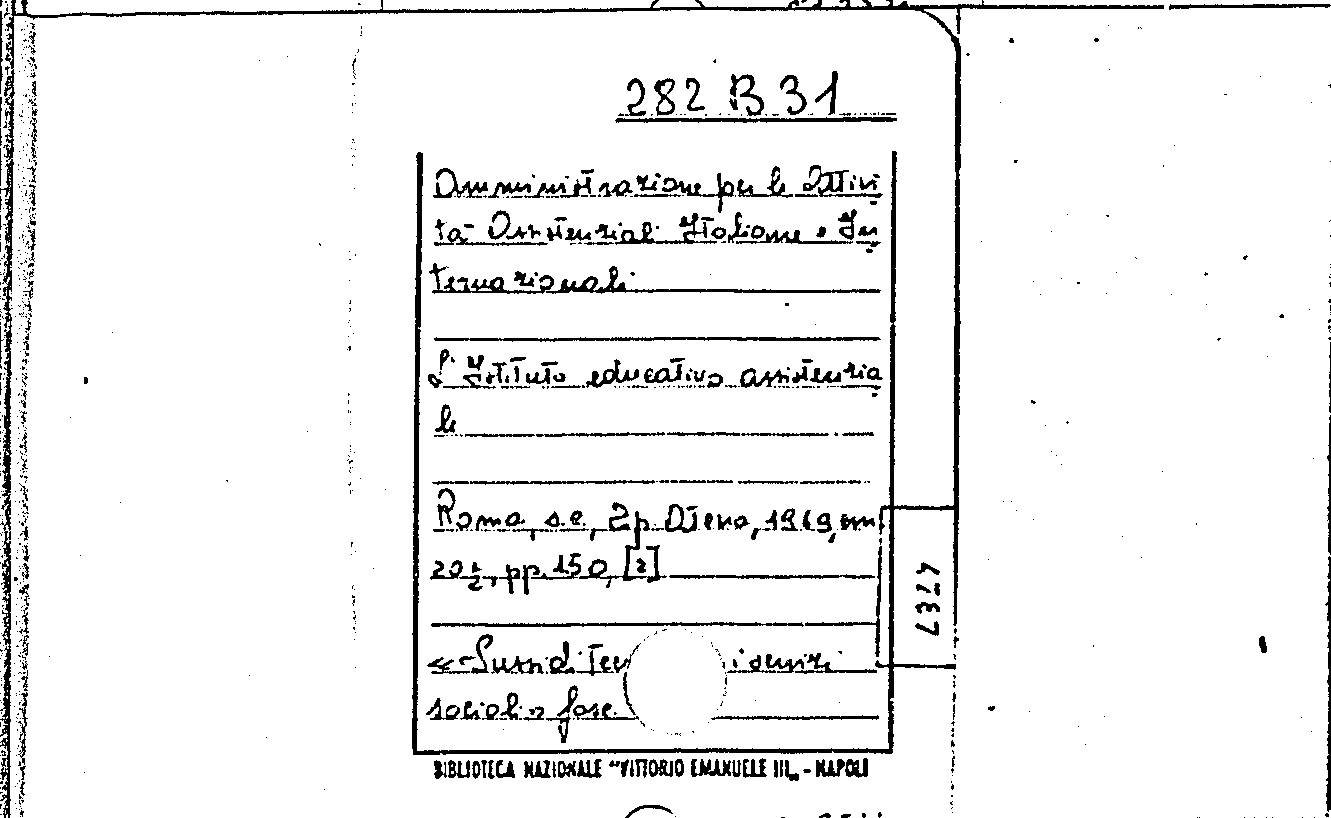 282 B 31
Amministrazione per le Attivi
tà Assistenziali Italiane e In
ternazionali
L'Istituto educativo assistenzia
le
Roma, s.e., Tip. Ateno, 1969, cm
20½, pp. 150, [2]
«Sussidi i servizi
sociali» fasc.
BIBLIOTECA NAZIONALE "VITTORIO EMANUELE III„ - NAPOLI